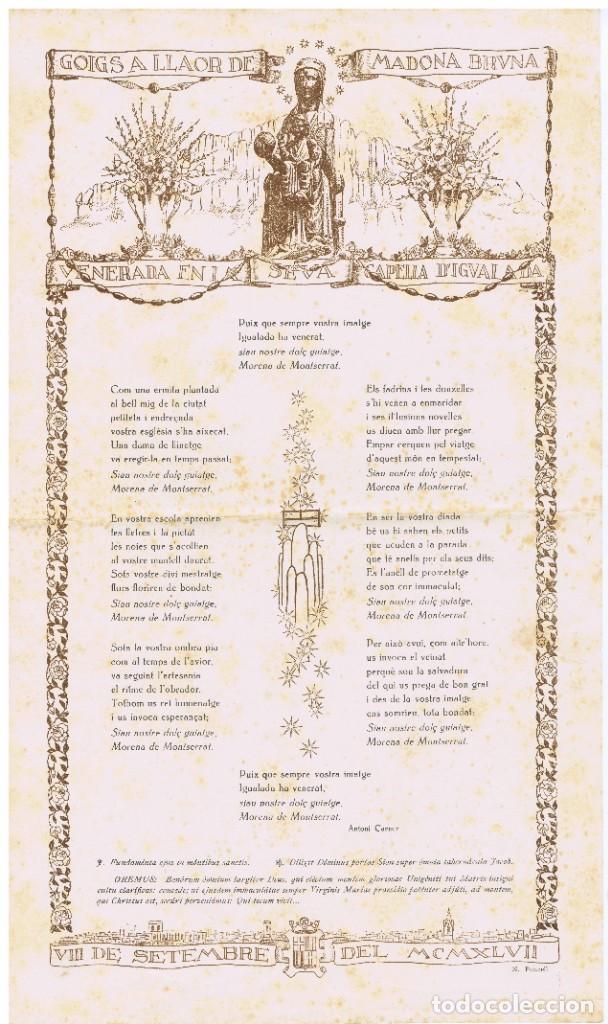 GOIGS A LLAOR DE MADONA BRVNA
VENERADA EN LA SEVA CAPELLA D'IGVALADA
Puix que sempre vostra imatge
Igualada ha venerat,
siau nostre dolç guiatge,
Morena de Montserrat.
Com una ermita plantada
al bell mig de la ciutat
petiteta i endreçada
vostra església s'ha aixecat.
Una dama de llinatge
va eregir-la en temps passat;
Siau nostre dolç guiatge,
Morena de Montserrat.
En vostra escola aprenien
les lletres i la pietat
les noies que s'acollien
al vostre mantell daurat.
Sota vostre diví mestratge
flors floriren de bondat:
Siau nostre dolç guiatge,
Morena de Montserrat.
Sota la vostra ombra pia
com al temps de l'avior,
va seguint l'artesania
el ritme de l'obrador.
Tothom us ret homenatge
i us invoca esperançat;
Siau nostre dolç guiatge,
Morena de Montserrat.
Els fadrins i les donzelles
s'hi venen a enmaridar
i ses il'lusions novelles
us diuen amb llur pregar.
Empar cerquen pel viatge
d'aquest món en tempestat;
Siau nostre dolç guiatge,
Morena de Montserrat.
En ser la vostra diada
bé us hi saben els petits
que acuden a la parada
que té anells per els seus dits;
Es l'anell de prometatge
de son cor immaculat;
Siau nostre dolç guiatge,
Morena de Montserrat.
Per això avui, com ahir'hore,
us invoca el veïnat
perquè sou la salvadora
del qui us prega de bon grat
i des de la vostra imatge
ens somrieu, tota bondat;
Siau nostre dolç guiatge,
Morena de Montserrat.
Puix que sempre vostra imatge
Igualada ha venerat,
siau nostre dolç guiatge,
Morena de Montserrat.
Antoni Carner
℣. Fundamenta ejus in móntibus sanctis. ℟. Diligit Dóminus portas Sion super ómnia tabernácula Jacob.
OREMUS: Bonórum ómnium largítor Deus, qui eléctum montem gloriosae Unigéniti tui Matris insigni
cultu clarificas: concede; ut ejusdem immaculátae semper Virginis Mariae praesidio poténter adjúti, ad montem,
qui Christus est, secúri perveniámus: Qui tecum vivit...
VIII DE SETEMBRE DEL MCMXLVII
todocoleccion
todocoleccion.net